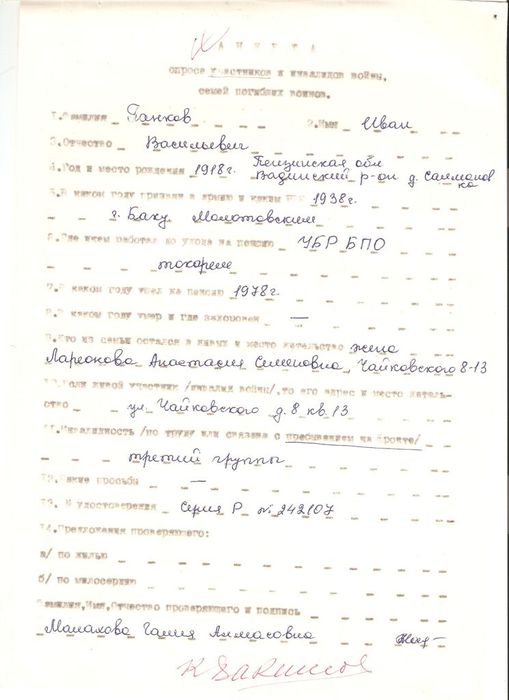 АНКЕТА
опроса участников и инвалидов войны,
семей погибших воинов.
1.Фамилия Панков 2.Имя Иван
3.Отчество Васильевич
4.Год и место рождения 1918г. Пензинская обл
Вадинский р-он д.
5.В каком году призван в армию и каким РВК 1938г.
г. Баку Молотовским
6.Где и кем работал до ухода на пенсию УБР БПО
токарем
7.В каком году ушел на пенсию 1978г.
8.В каком году умер и где захоронен —
9.Кто из семьи остался в живых и место жительство жена
Ларионова Анастасия Семеновна Чайковского 8-13
10.Если живой участник /инвалид войны/,то его адрес и место житель-
ство ул. Чайковского д.8 кв.13
11.Инвалидность /по труду или связана с пребыванием на фронте/
третий группы
12.Какие просьбы —
13. № удостоверения Серия Р № 242107
14.Предложения проверяющего:
а/ по жилью
б/ по милосердию
Фамилия,Имя,Отчество проверяющего и подпись
Малахова Галия Алмасовна